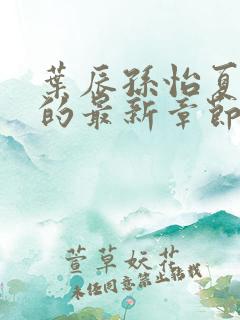 葉辰孫怡夏
的最新章節
萱草妖花
未经同意禁止转载